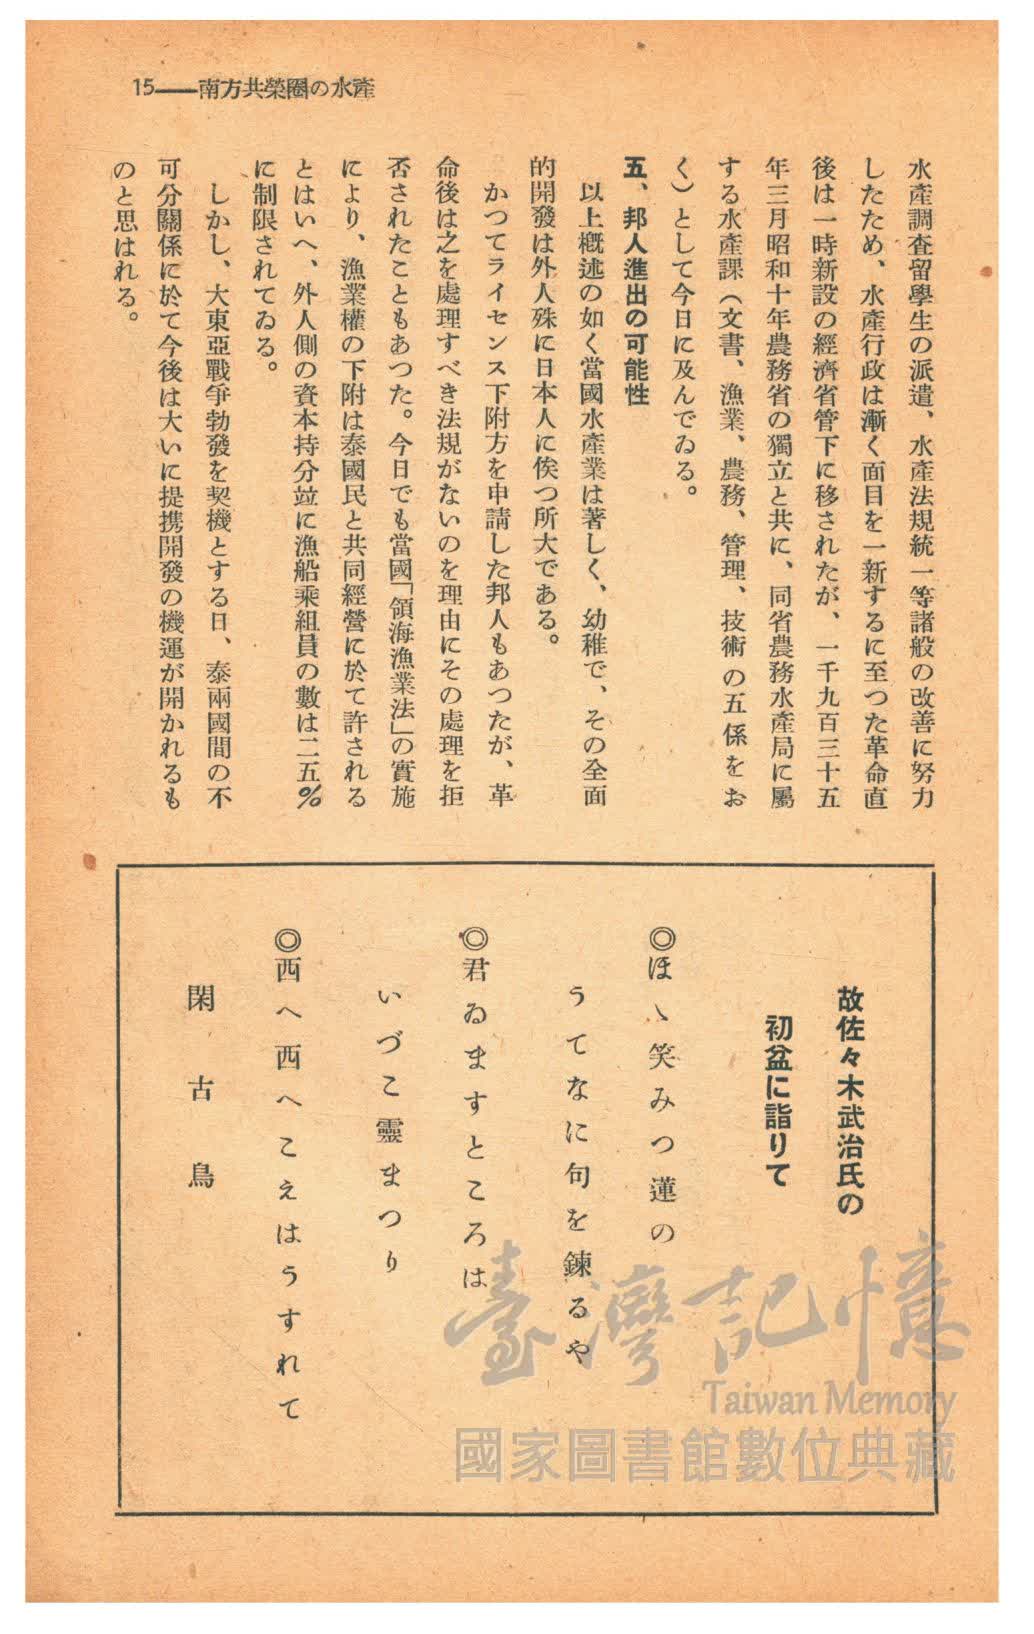 15——南方共榮圈の水產
水產調査留學生の派遣、水產法規統一等諸般の改善に努力
したため、水產行政は漸く面目を一新するに至つた革命直
後は一時新設の經濟省管下に移されたが、一千九百三十五
年三月昭和十年農務省の獨立と共に、同省農務水產局に屬
する水產課（文書、漁業、農務、管理、技術の五係をお
く）として今日に及んでゐる。
五、邦人進出の可能性
以上槪述の如く當國水產業は著しく、幼稚で、その全面
的開發は外人殊に日本人に俟つ所大である。
かつてライセンス下附方を申請した邦人もあつたが、革
命後は之を處理すべき法規がないのを理由にその處理を拒
否されたこともあつた。今日でも當國「領海漁業法」の實施
により、漁業權の下附は泰國民と共同經營に於て許される
とはいへ、外人側の資本持分竝に漁船乘組員の數は二五％
に制限されてゐる。
しかし、大東亞戰爭勃發を契機とする日、泰兩國間の不
可分關係に於て今後は大いに提携開發の機運が開かれるも
のと思はれる。
故佐々木武治氏の
初盆に詣りて
◎ほゝ笑みつ蓮の
うてなに句を鍊るや
◎君ゐますところは
いづこ靈まつり
◎西へ西へこえはうすれて
閑古鳥
臺灣記憶
Taiwan Memory
國家圖書館數位典藏